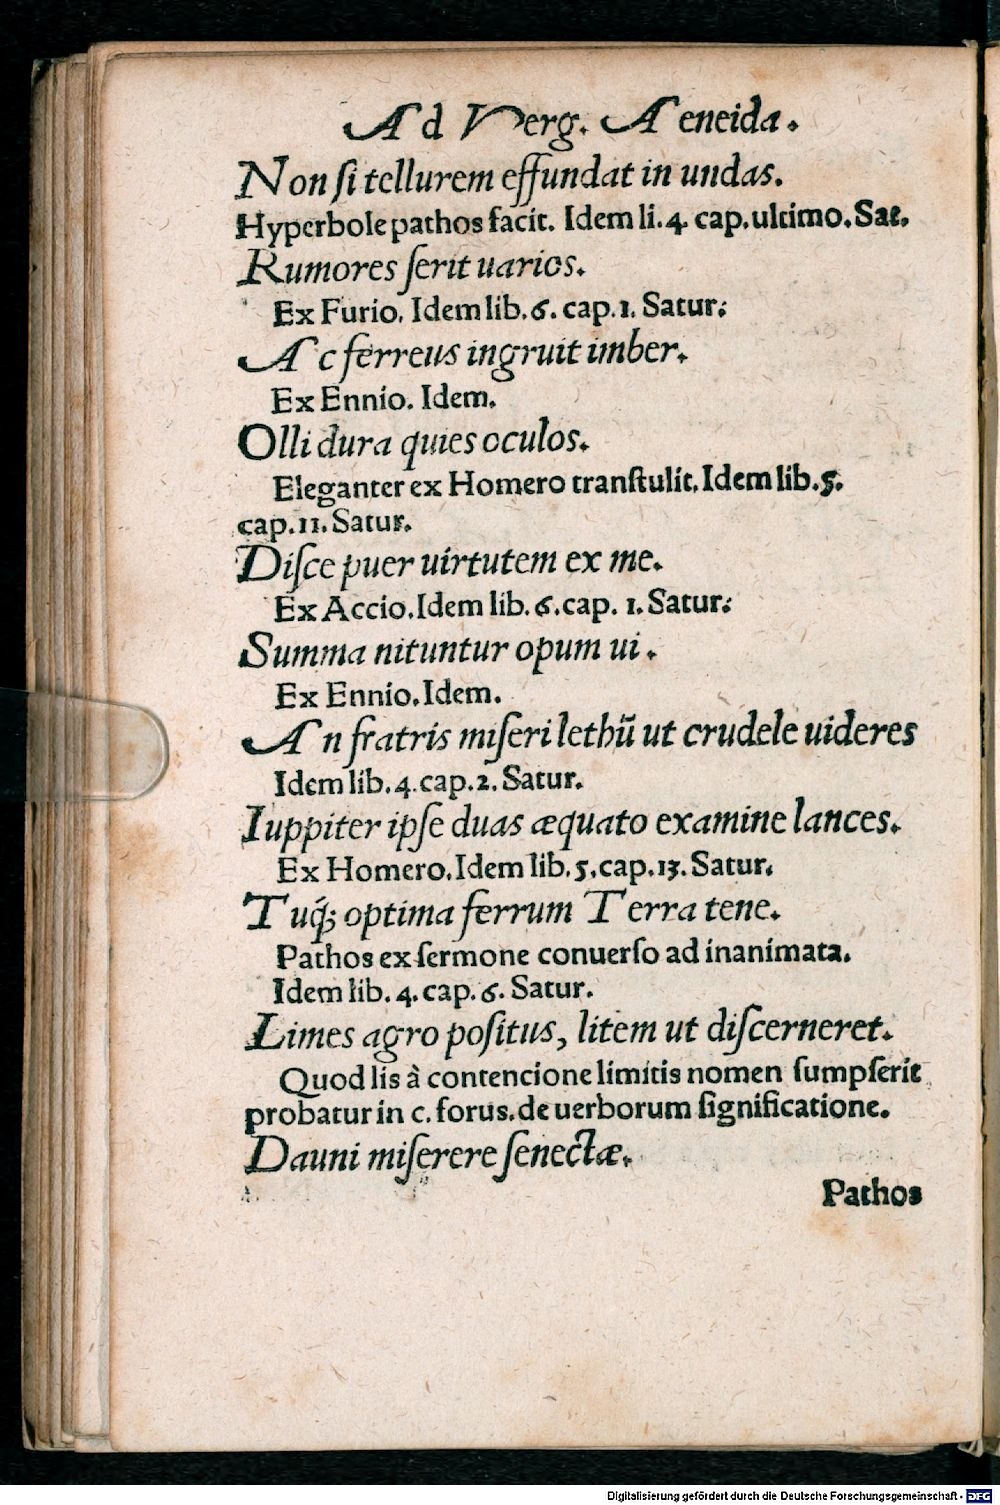 Ad Verg. Aeneida.
Non ſi tellurem effundat in undas.
Hyperbole pathos facit. Idem li. 4. cap. ultimo. Sat.
Rumores ſerit uarios.
Ex Furio. Idem lib. 6. cap. 1. Satur:
Ac ferreus ingruit imber.
Ex Ennio. Idem.
Olli dura quies oculos.
Eleganter ex Homero tranſtulit. Idem lib. 5.
cap. 11. Satur.
Diſce puer uirtutem ex me.
Ex Accio. Idem lib. 6. cap. 1. Satur:
Summa nituntur opum ui.
Ex Ennio. Idem.
An fratris miſeri lethū ut crudele uideres
Idem lib. 4. cap. 2. Satur.
Iuppiter ipſe duas æquato examine lances.
Ex Homero. Idem lib. 5. cap. 13. Satur.
Tuq́; optima ferrum Terra tene.
Pathos ex ſermone conuerſo ad inanimata.
Idem lib. 4. cap. 6. Satur.
Limes agro poſitus, litem ut diſcerneret.
Quod lis à contencione limitis nomen ſumpſerit
probatur in c. forus. de uerborum ſignificatione.
Dauni miſerere ſenectæ.
Pathos
Digitalisierung gefördert durch die Deutsche Forschungsgemeinschaft - DFG